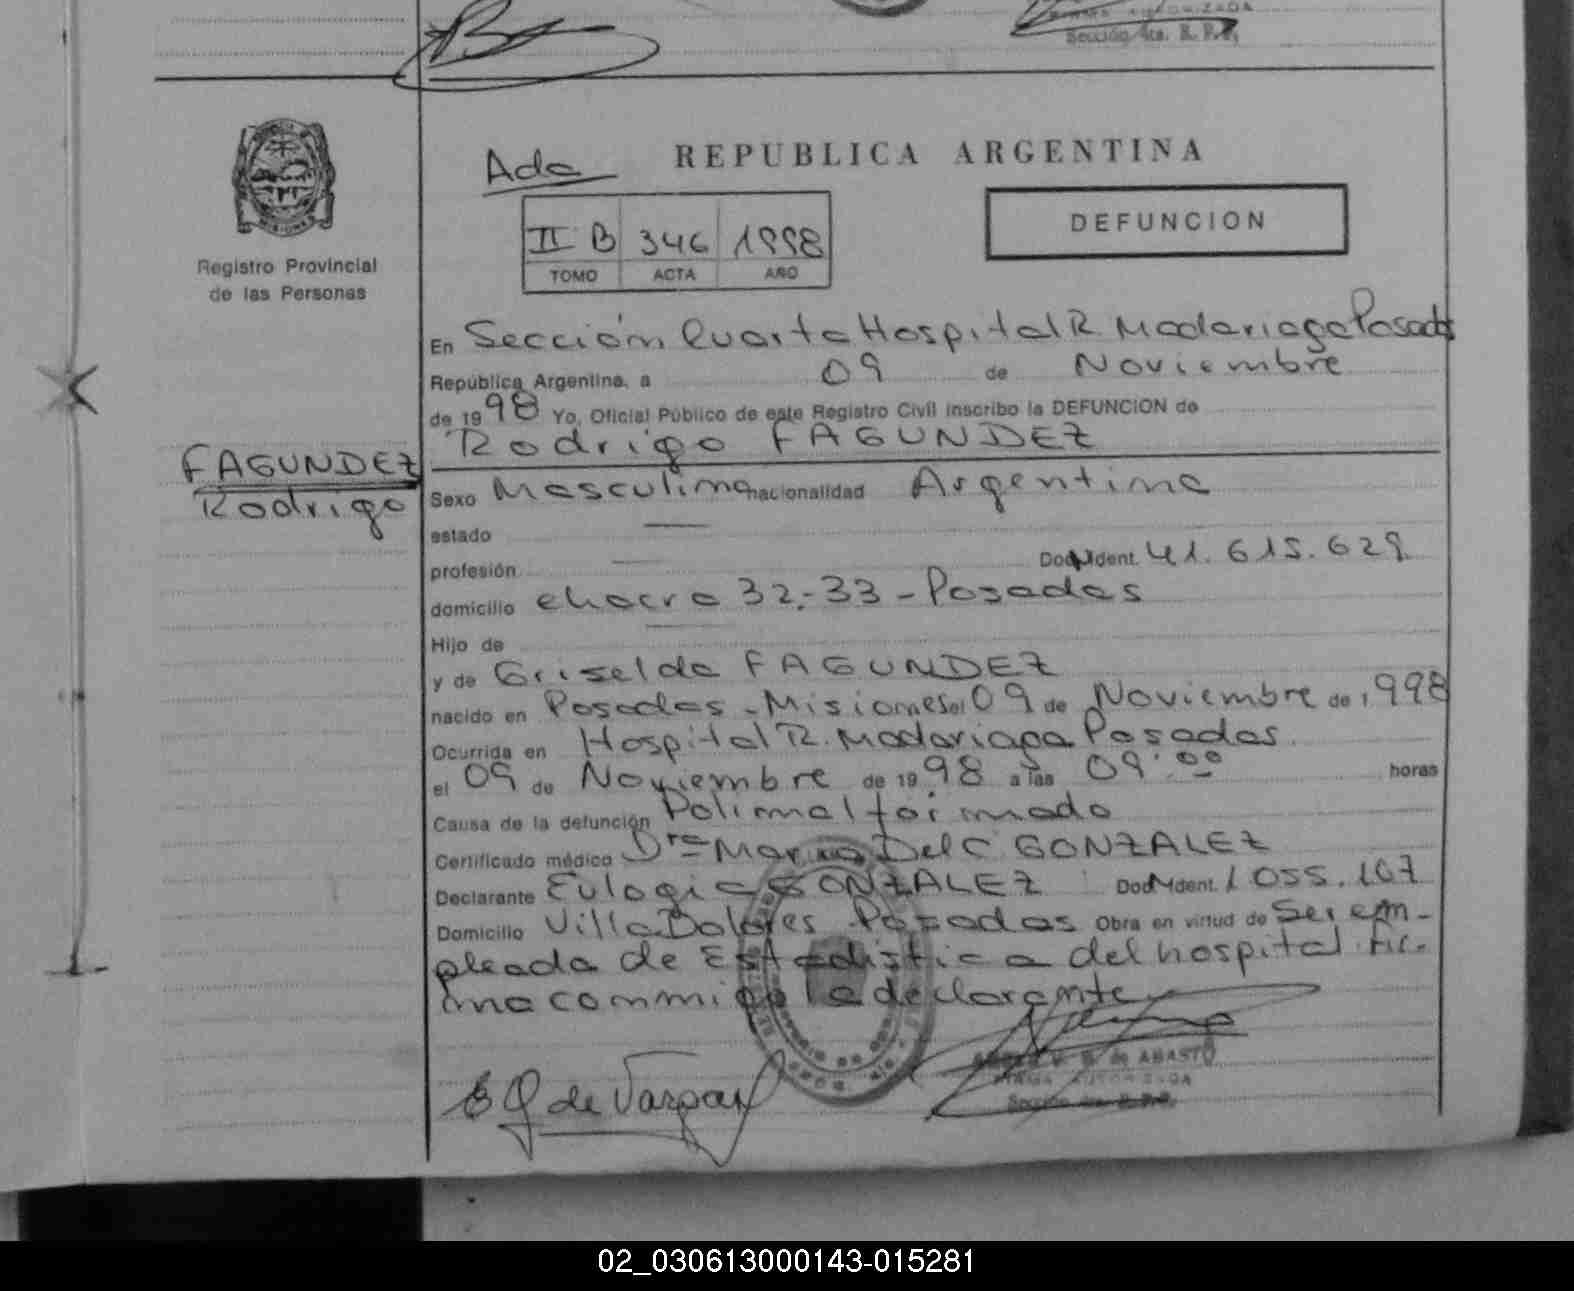 FIRMA AUTORIZADA
Sección 4ta. R. P. P.
Registro Provincial
de las Personas
FAGUNDEZ
Rodrigo
Ada
REPUBLICA ARGENTINA
II B 346 1998
TOMO ACTA AÑO
DEFUNCION
En Sección Cuarta Hospital R. Madariaga Posadas
República Argentina, a 09 de Noviembre
de 1998 Yo, Oficial Público de este Registro Civil inscribo la DEFUNCION de
Rodrigo FAGUNDEZ
Sexo Masculino nacionalidad Argentina
estado —
profesión — Doc. Ident. 41.615.629
domicilio chacra 32-33 - Posadas
Hijo de —
y de Griselda FAGUNDEZ
nacido en Posadas - Misiones el 09 de Noviembre de 1998
Ocurrida en Hospital R. Madariaga Posadas
el 09 de Noviembre de 1998 a las 09:00 horas
Causa de la defunción Polimalformado
Certificado médico Dra Marina Del C. GONZALEZ
Declarante Eulogia GONZALEZ Doc. Ident. 1.055.107
Domicilio Villa Dolores Posadas Obra en virtud de Ser em-
pleada de Estadistica del hospital. Fir-
ma conmigo la declarante
E G de Vargas
de ABASTO
FIRMA AUTORIZADA
Sección 4ta. R. P. P.
02_030613000143-015281